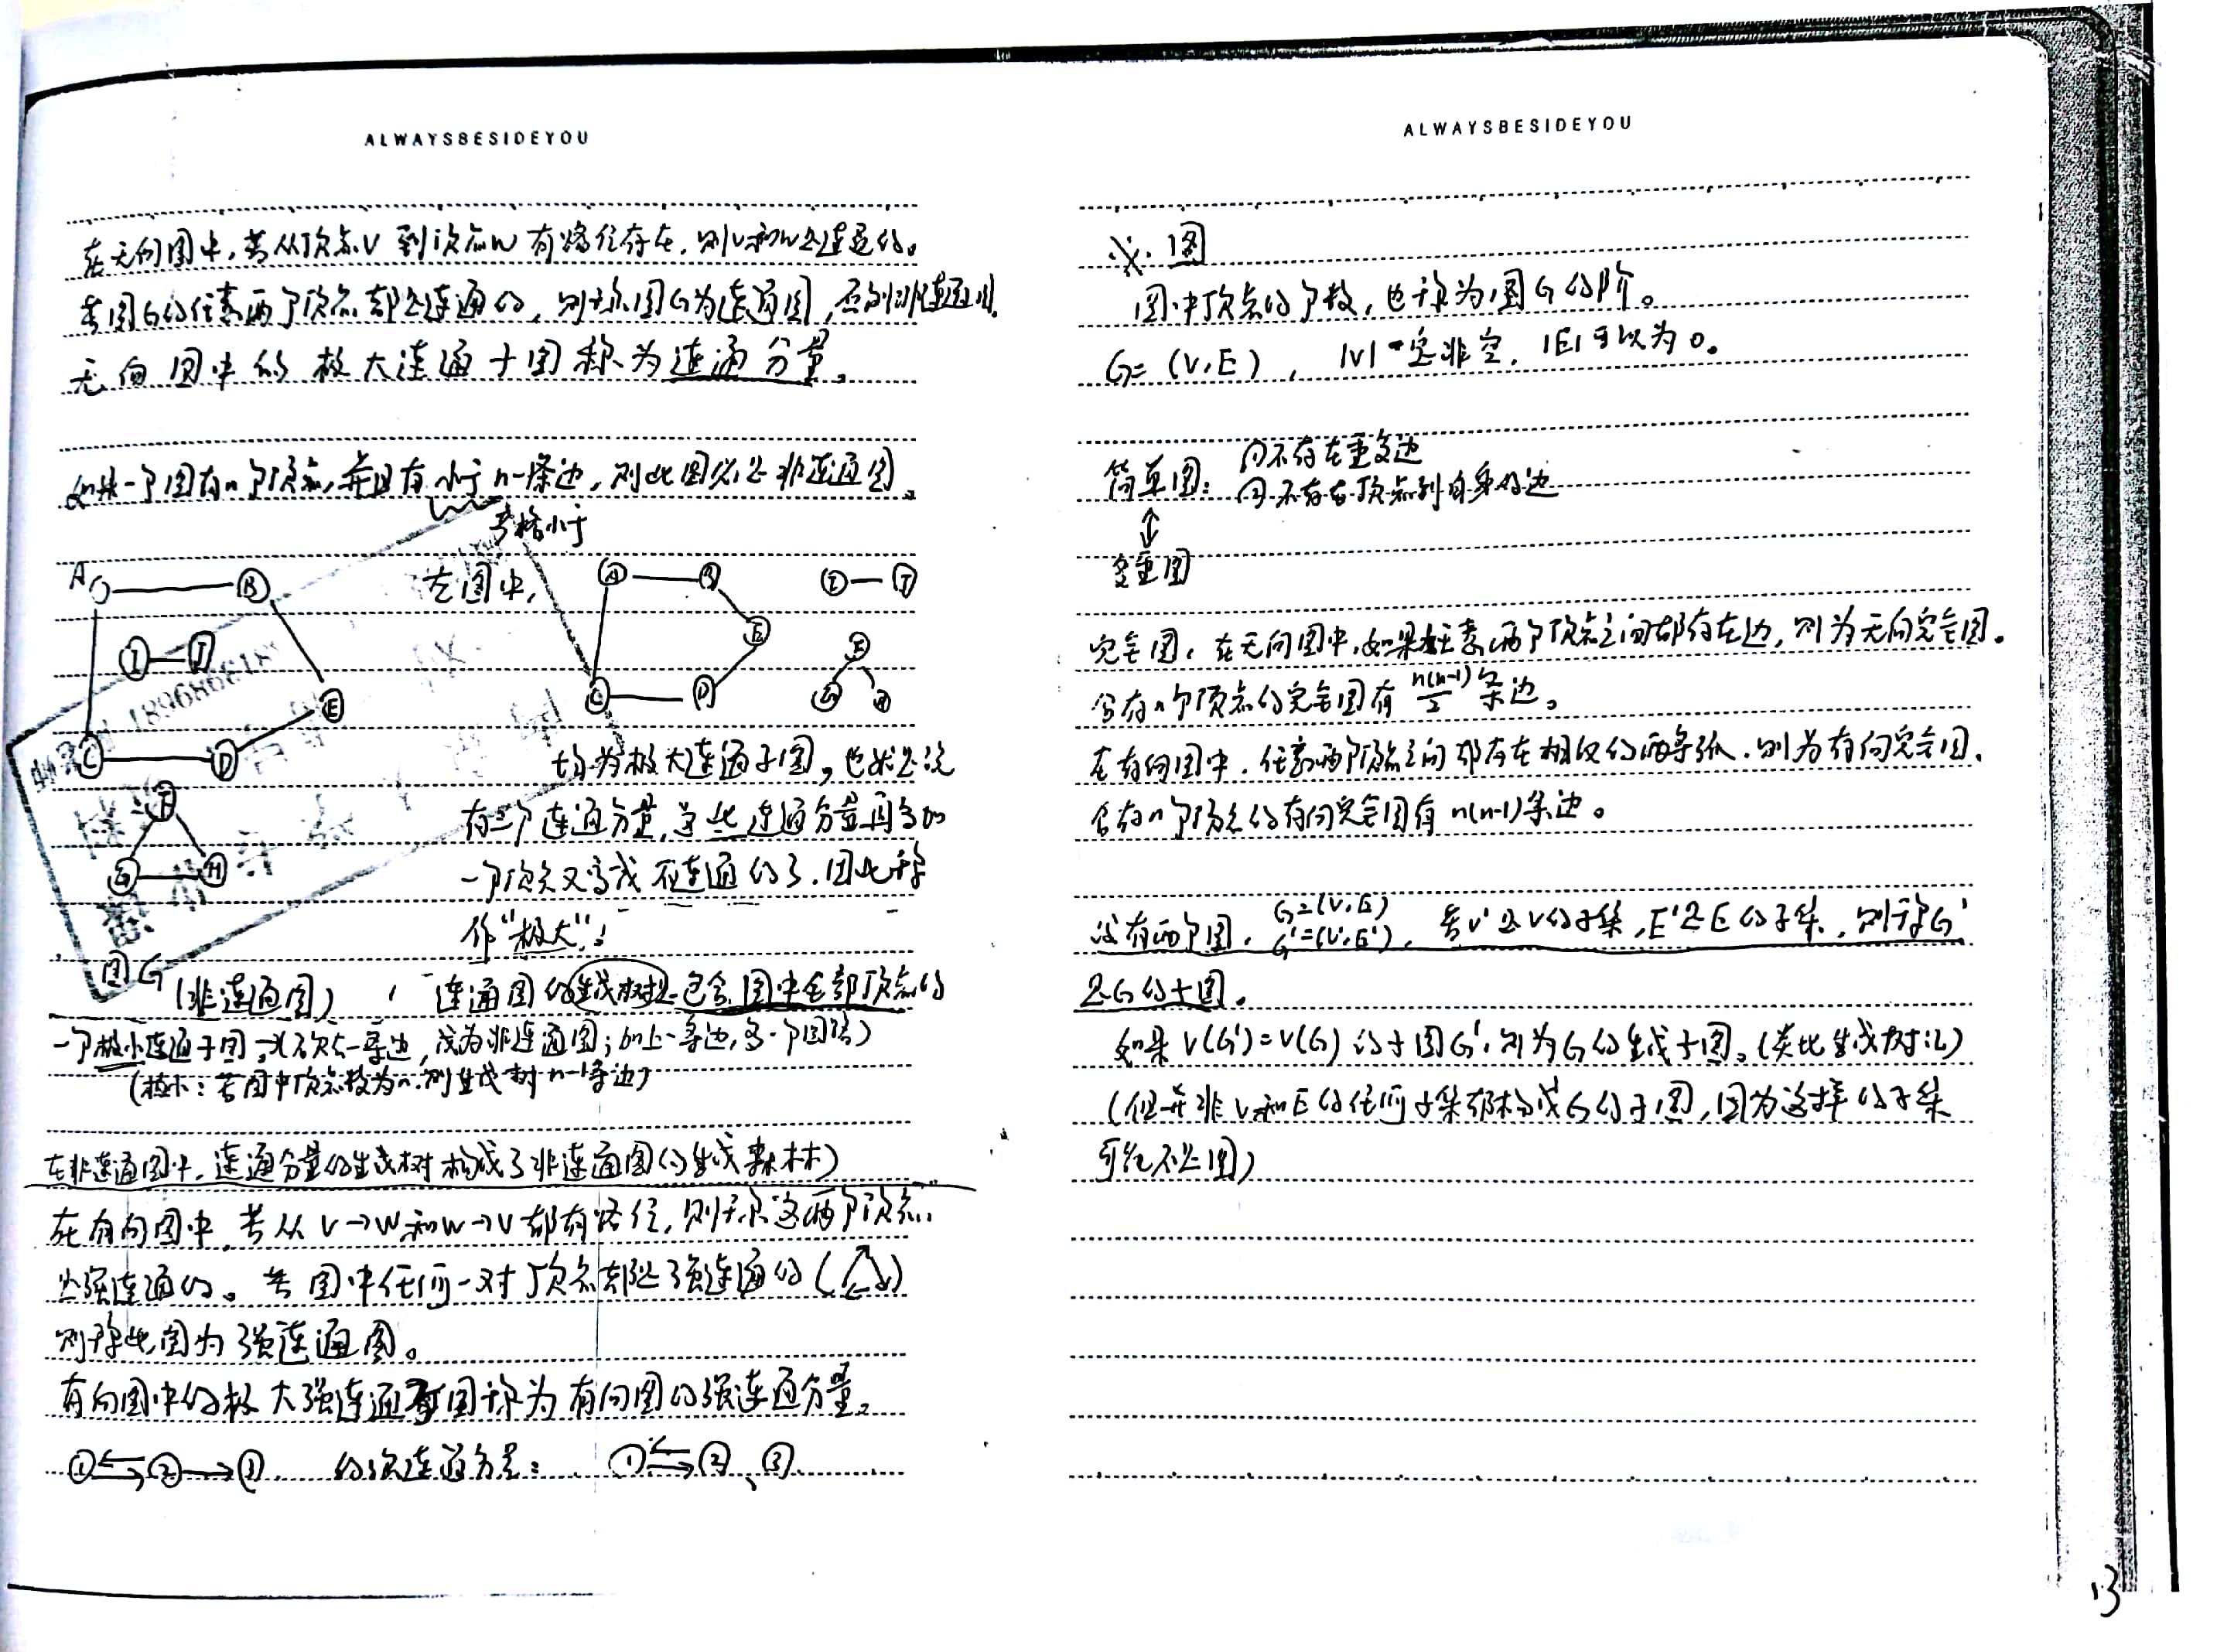 ALWAYSBESIDEYOU
在无向图中,若从顶点V到顶点W有路径存在,则V和W是连通的。
若图G的任意两个顶点都是连通的,则称图G为连通图,否则非连通图。
无向图中的极大连通子图称为连通分量。
如果一个图有n个顶点,并且有小于n-1条边,则此图必是非连通图。
严格小于
A B
I J
E
C D
F
G H
图G
(非连通图)
左图中,
A B
E
C D
I J
F
G H
均为极大连通子图,也就是说
有三个连通分量,这些连通分量再多加
一个顶点又变成不连通的了.因此称
作"极大"!
连通图的生成树是包含图中全部顶点的
一个极小连通子图,减去一条边,成为非连通图;加上一条边,多一个回路)
(极小:若图中顶点数为n.则生成树n-1条边)
在非连通图中,连通分量的生成树构成了非连通图的生成森林)
在有向图中,若从V→W和W→V都有路径,则称这两个顶点
是强连通的。若图中任何一对顶点都是强连通的( )
则称此图为强连通图。
有向图中的极大强连通子图称为有向图的强连通分量。
① ② ③ 的强连通分量: ① ②、③
ALWAYSBESIDEYOU
※.图
图中顶点的个数,也称为图G的阶。
G=(V,E), |V|一定非空,|E|可以为0。
简单图:
①不存在重复边
②不存在顶点到自身的边
多重图
完全图,在无向图中,如果任意两个顶点之间都存在边,则为无向完全图。
含有n个顶点的完全图有n(n-1)/2条边。
在有向图中,任意两个顶点之间都存在相反的两条弧,则为有向完全图,
含有n个顶点的有向完全图有n(n-1)条边。
设有两个图, G=(V,E) G'=(V',E'), 若V'是V的子集,E'是E的子集,则称G'
是G的子图。
如果V(G')=V(G)的子图G',则为G的生成子图。(类比生成树记)
(但并非V和E的任何子集都构成G的子图,因为这样的子集
可能不是图)
13